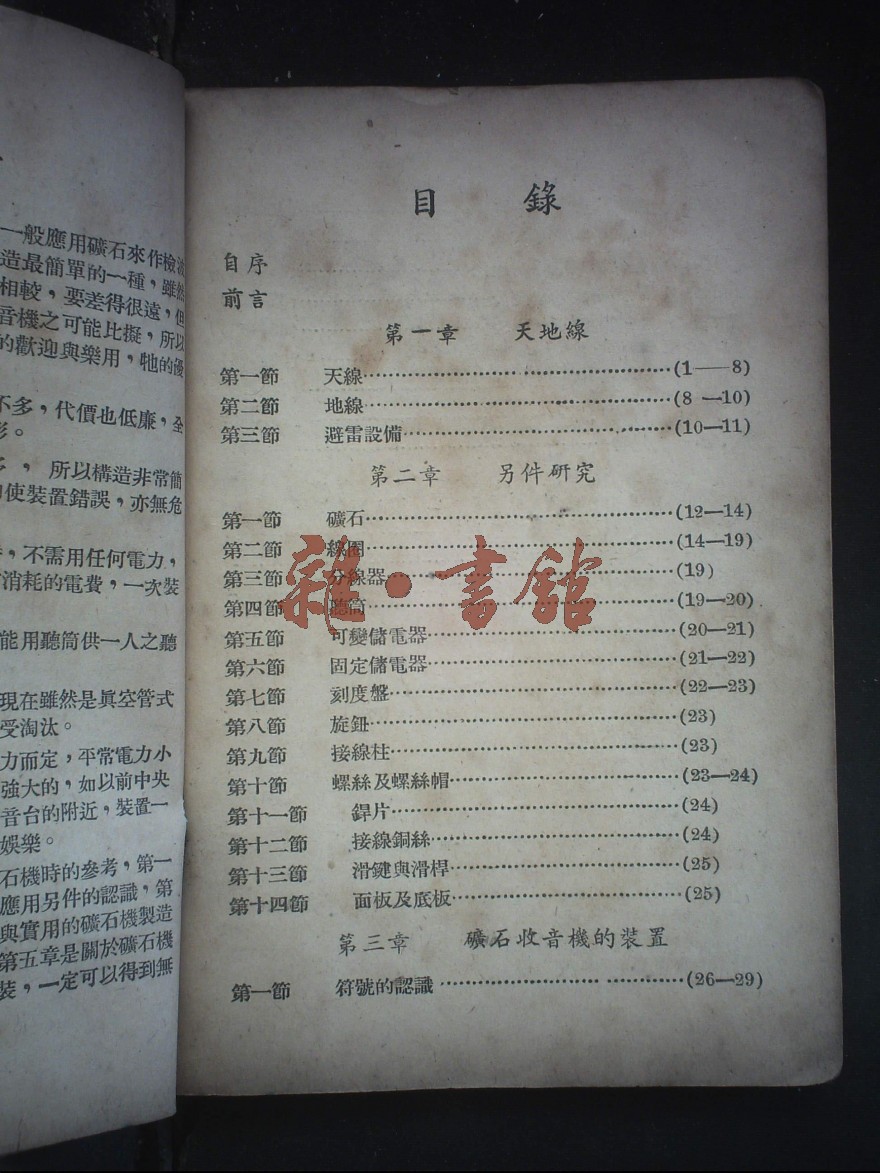 一般應用礦石來作檢波
造最簡單的一種，雖然
相較，要差得很遠，但
音機之可能比擬，所以
的歡迎與樂用，牠的優
不多，代價也低廉，全
所以構造非常簡
使裝置錯誤，亦無危
，不需用任何電力，
消耗的電費，一次裝
能用聽筒供一人之聽
現在雖然是眞空管式
受淘汰。
力而定，平常電力小
強大的，如以前中央
音台的附近，裝置一
娛樂。
石機時的參考，第一
應用另件的認識，第
與實用的礦石機製造
第五章是關於礦石機
裝，一定可以得到無
目 錄
自序
前言
第一章 天地線
第一節 天線……(1——8)
第二節 地線……(8—10)
第三節 避雷設備……(10—11)
第二章 另件研究
第一節 礦石……(12—14)
第二節 線圈……(14—19)
第三節 分線器……(19)
第四節 聽筒……(19—20)
第五節 可變儲電器……(20—21)
第六節 固定儲電器……(21—22)
第七節 刻度盤……(22—23)
第八節 旋鈕……(23)
第九節 接線柱……(23)
第十節 螺絲及螺絲帽……(23—24)
第十一節 銲片……(24)
第十二節 接線銅絲……(24)
第十三節 滑鍵與滑桿……(25)
第十四節 面板及底板……(25)
第三章 礦石收音機的裝置
第一節 符號的認識……(26—29)
雜·書館